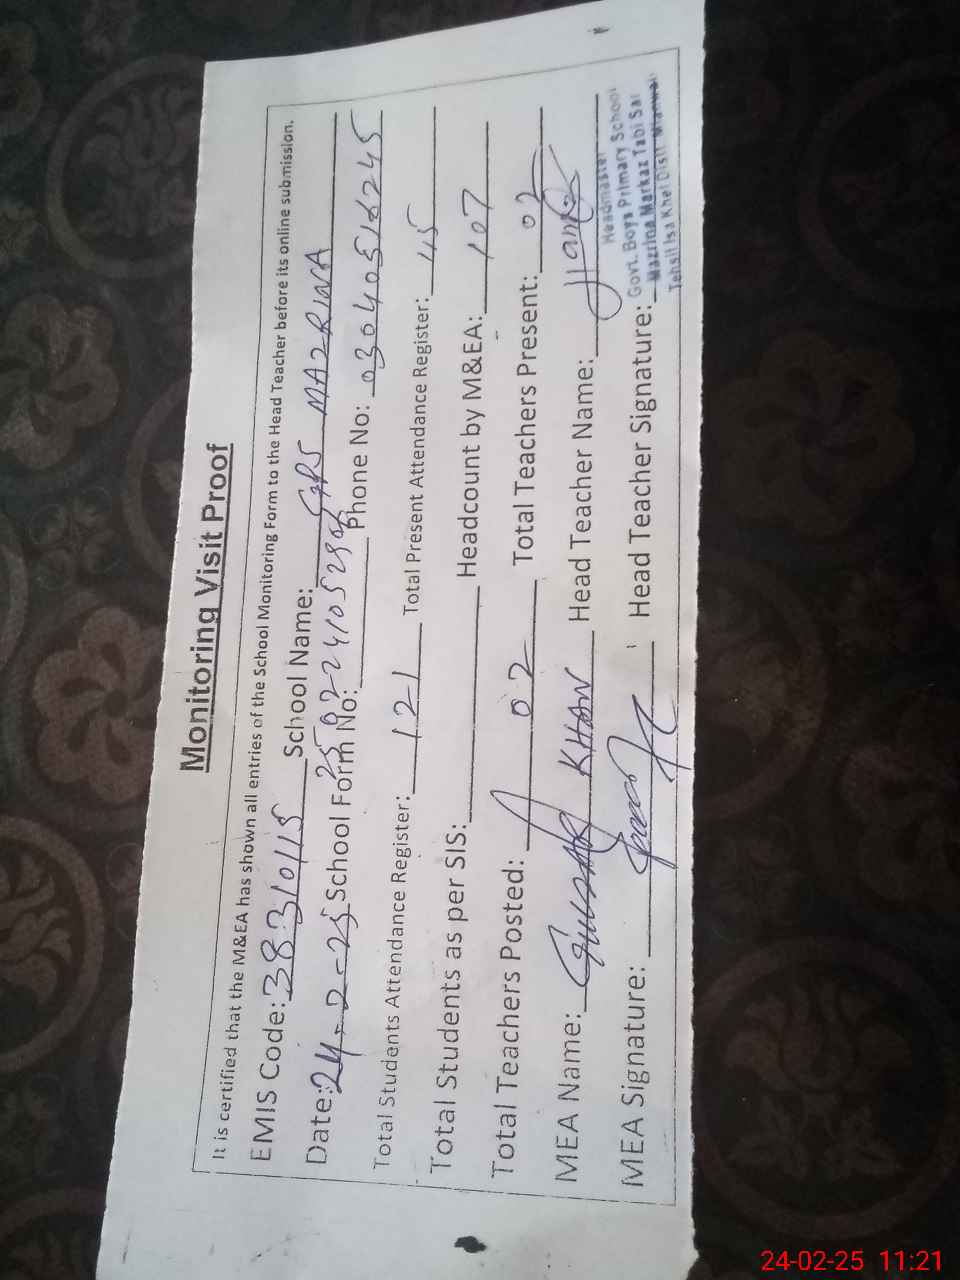 Monitoring Visit Proof
It is certified that the M&EA has shown all entries of the School Monitoring Form to the Head Teacher before its online submission.
EMIS Code: 38310115 School Name: GPS MAZRINA
Date: 24-2-25 School Form No: Phone No: 03040516245
Total Students Attendance Register: 121 Total Present Attendance Register: 115
Total Students as per SIS: Headcount by M&EA: 107
Total Teachers Posted: 02 Total Teachers Present: 02
MEA Name: KHAN Head Teacher Name:
MEA Signature: Head Teacher Signature:
Headmaster
Govt. Boys Primary School
Mazrina Markaz Tabi Sar
Tehsil Isa Khel Distt Mianwali
24-02-25 11:21